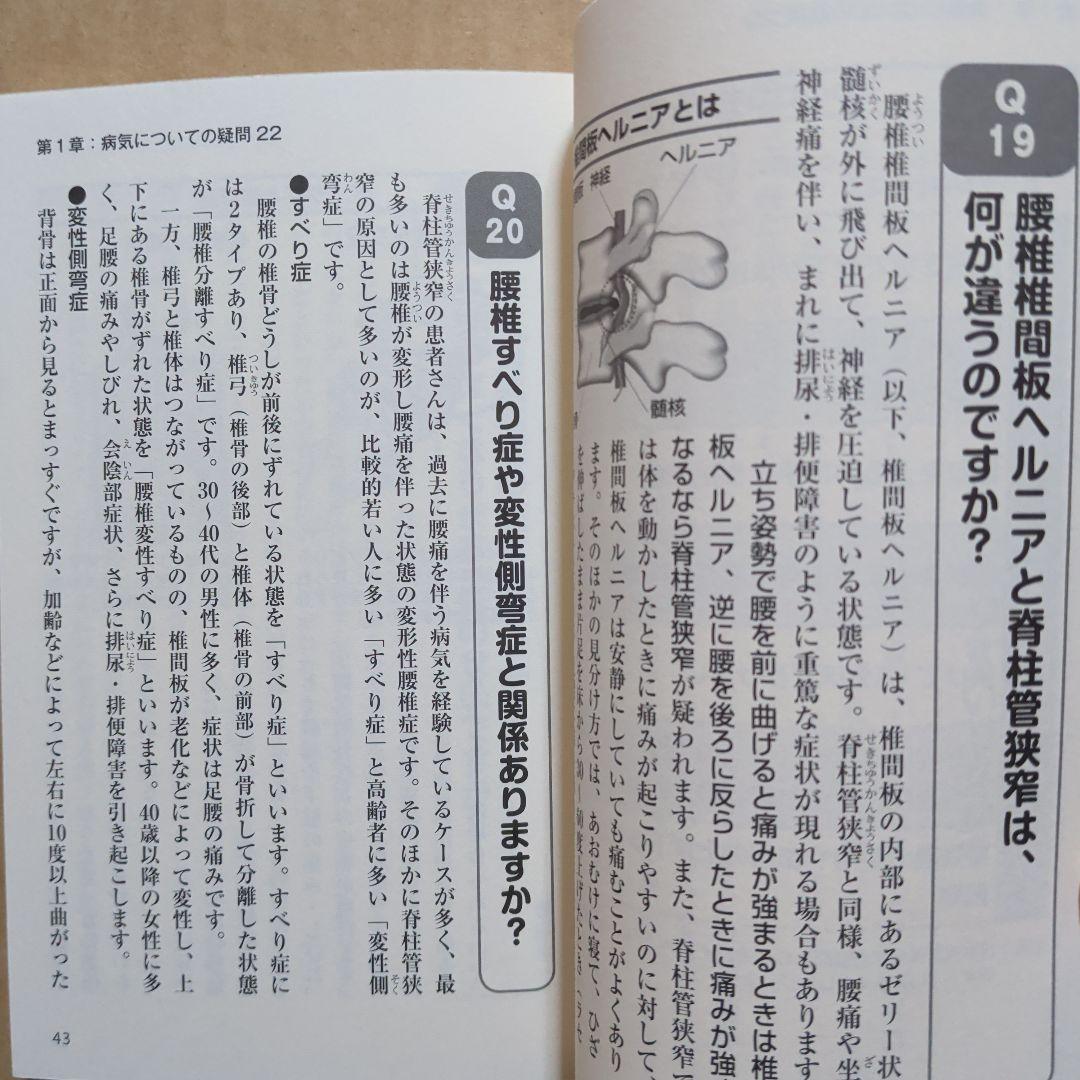 Q
19
腰椎椎間板ヘルニアと脊柱管狭窄は、
何が違うのですか？
腰椎椎間板ヘルニア（以下、椎間板ヘルニア）は、椎間板の内部にあるゼリー状
髄核が外に飛び出て、神経を圧迫している状態です。脊柱管狭窄と同様、腰痛や坐
神経痛を伴い、まれに排尿・排便障害のように重篤な症状が現れる場合もあります
間板ヘルニアとは
ヘルニア
神経
髄核
立ち姿勢で腰を前に曲げると痛みが強まるときは椎
板ヘルニア、逆に腰を後ろに反らしたときに痛みが強
なるなら脊柱管狭窄が疑われます。また、脊柱管狭窄で
は体を動かしたときに痛みが起こりやすいのに対して、
椎間板ヘルニアは安静にしていても痛むことがよくあり
ます。そのほかの見分け方では、あおむけに寝て、ひざ
を伸ばしたまま片足を床から30〜60度上げたとき
第1章：病気についての疑問22
Q
20
腰椎すべり症や変性側弯症と関係ありますか？
脊柱管狭窄の患者さんは、過去に腰痛を伴う病気を経験しているケースが多く、最
も多いのは腰椎が変形し腰痛を伴った状態の変形性腰椎症です。そのほかに脊柱管狭
窄の原因として多いのが、比較的若い人に多い「すべり症」と高齢者に多い「変性側
弯症」です。
●すべり症
腰椎の椎骨どうしが前後にずれている状態を「すべり症」といいます。すべり症に
は2タイプあり、椎弓（椎骨の後部）と椎体（椎骨の前部）が骨折して分離した状態
が「腰椎分離すべり症」です。30〜40代の男性に多く、症状は足腰の痛みです。
一方、椎弓と椎体はつながっているものの、椎間板が老化などによって変性し、上
下にある椎骨がずれた状態を「腰椎変性すべり症」といいます。40歳以降の女性に多
く、足腰の痛みやしびれ、会陰部症状、さらに排尿・排便障害を引き起こします。
●変性側弯症
背骨は正面から見るとまっすぐですが、加齢などによって左右に10度以上曲がった
43